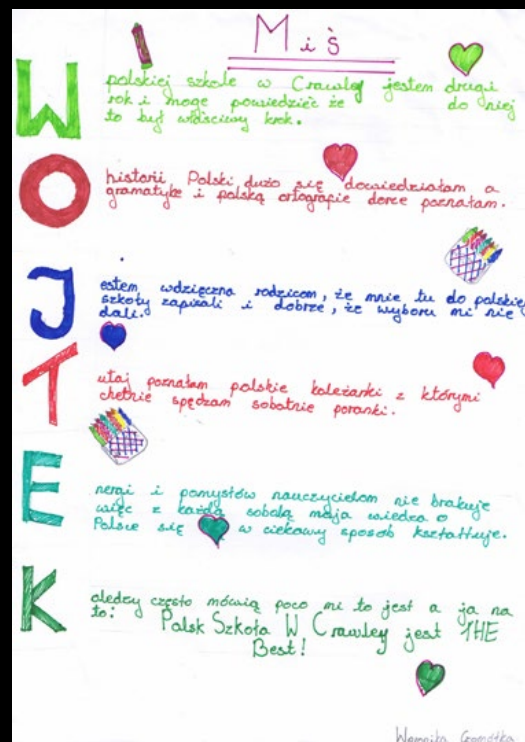 Miś
W polskiej szkole w Crawley jestem drugi
rok i mogę powiedzieć że do niej
to był właściwy krok.
O historii Polski dużo się dowiedziałam a
gramatykę i polską ortografie dorze poznałam.
Jestem wdzięczna rodzicom, że mnie tu do polskiej
szkoły zapisali i dobrze, że wyboru mi nie
dali.
Tutaj poznałam polskie koleżanki z którymi
chętnie spędzam sobotnie poranki.
Energi i pomysłów nauczycielom nie brakuje
więc z każdą sobotą moja wiedza o
Polsce się w ciekawy sposób kształtuje.
Koledzy często mówią poco mi to jest a ja na
to: Polsk Szkoła W Crawley jest THE
Best!
Weronika